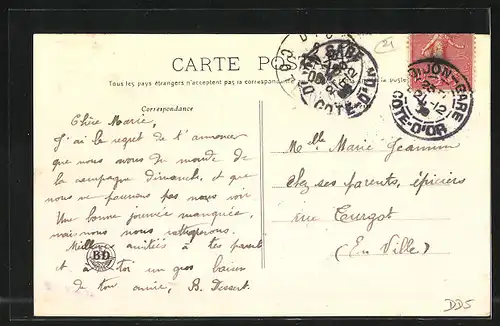 CARTE POSTALE
Tous les pays étrangers n'acceptent pas la correspondance
Correspondance
Chère Marie,
J'ai le regret de t'annoncer
que nous avons du monde de
la campagne dimanche, et que
nous ne pouvons pas nous voir
Une bonne journée manquée,
mais nous nous rattraperons.
Milles amitiés à tes parents
et à toi un gros baiser
de ton amie, B. Dessert.
BD
DIJON-GARE
COTE-D'OR
Melle Marie Jeannin
chez ses parents, épiciers
rue Turgot
(En Ville)
21
DD5